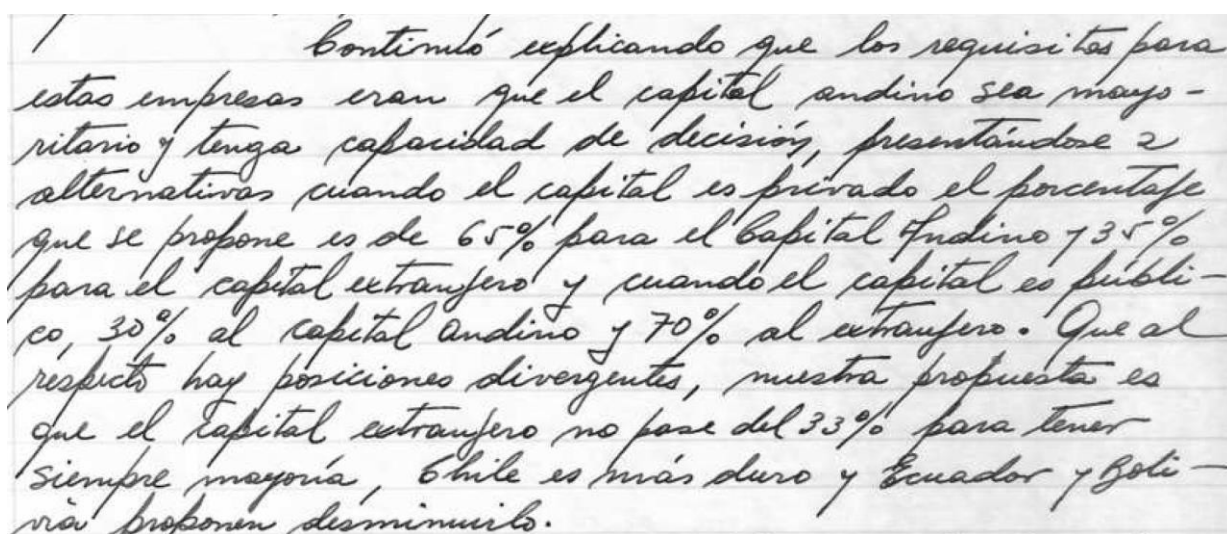 Continuó explicando que los requisitos para
estas empresas eran que el capital andino sea mayo-
ritario y tenga capacidad de decisión, presentándose 2
alternativas cuando el capital es privado el porcentaje
que se propone es de 65% para el Capital Andino y 35%
para el capital extranjero y cuando el capital es públi-
co, 30% al capital andino y 70% al extranjero. Que al
respecto hay posiciones divergentes, nuestra propuesta es
que el capital extranjero no pase del 33% para tener
siempre mayoría, Chile es más duro y Ecuador y Boli-
via proponen desminuirlo.